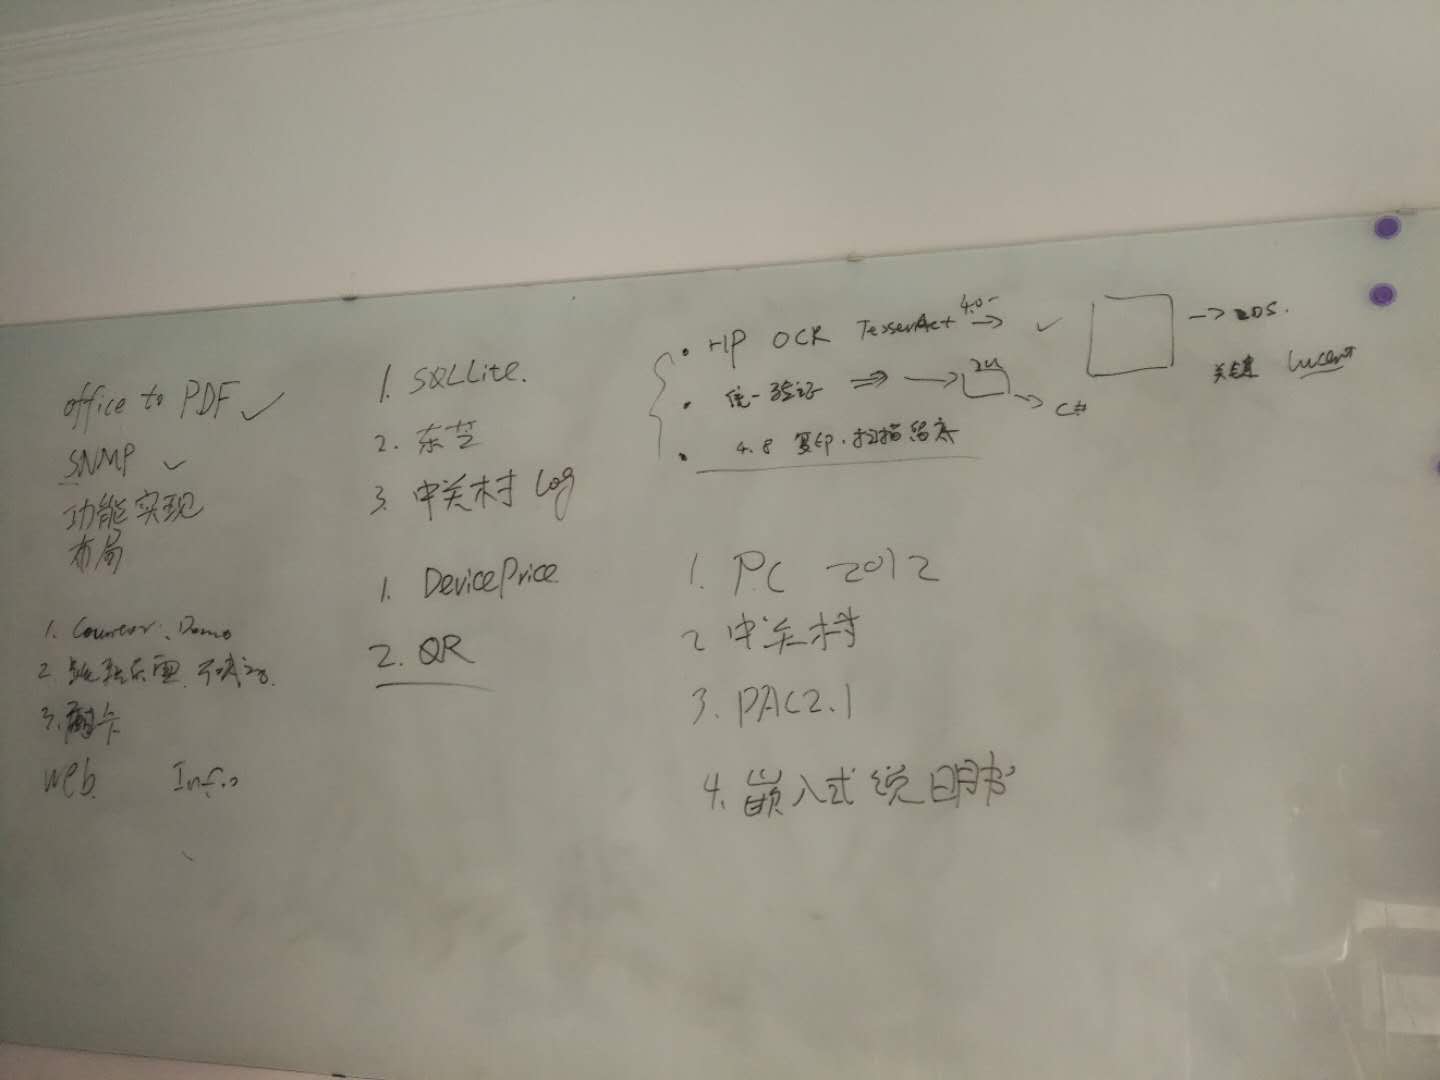 office to PDF ✓
SNMP ✓
功能实现
布局
1. Counter、Demo
2.
3. 卡
Web Info
1. SQLLite.
2. 东芝
3. 中关村 Log
1. DevicePrice
2. QR
· HP OCR TesserAct 4.0 → ✓ → 20S.
· 统一验证 ⇒ → 2U → C#
关键 lucent
· 4.8 复印、扫描留底
1. PC 2012
2 中关村
3. PAC2.1
4. 嵌入式说明书